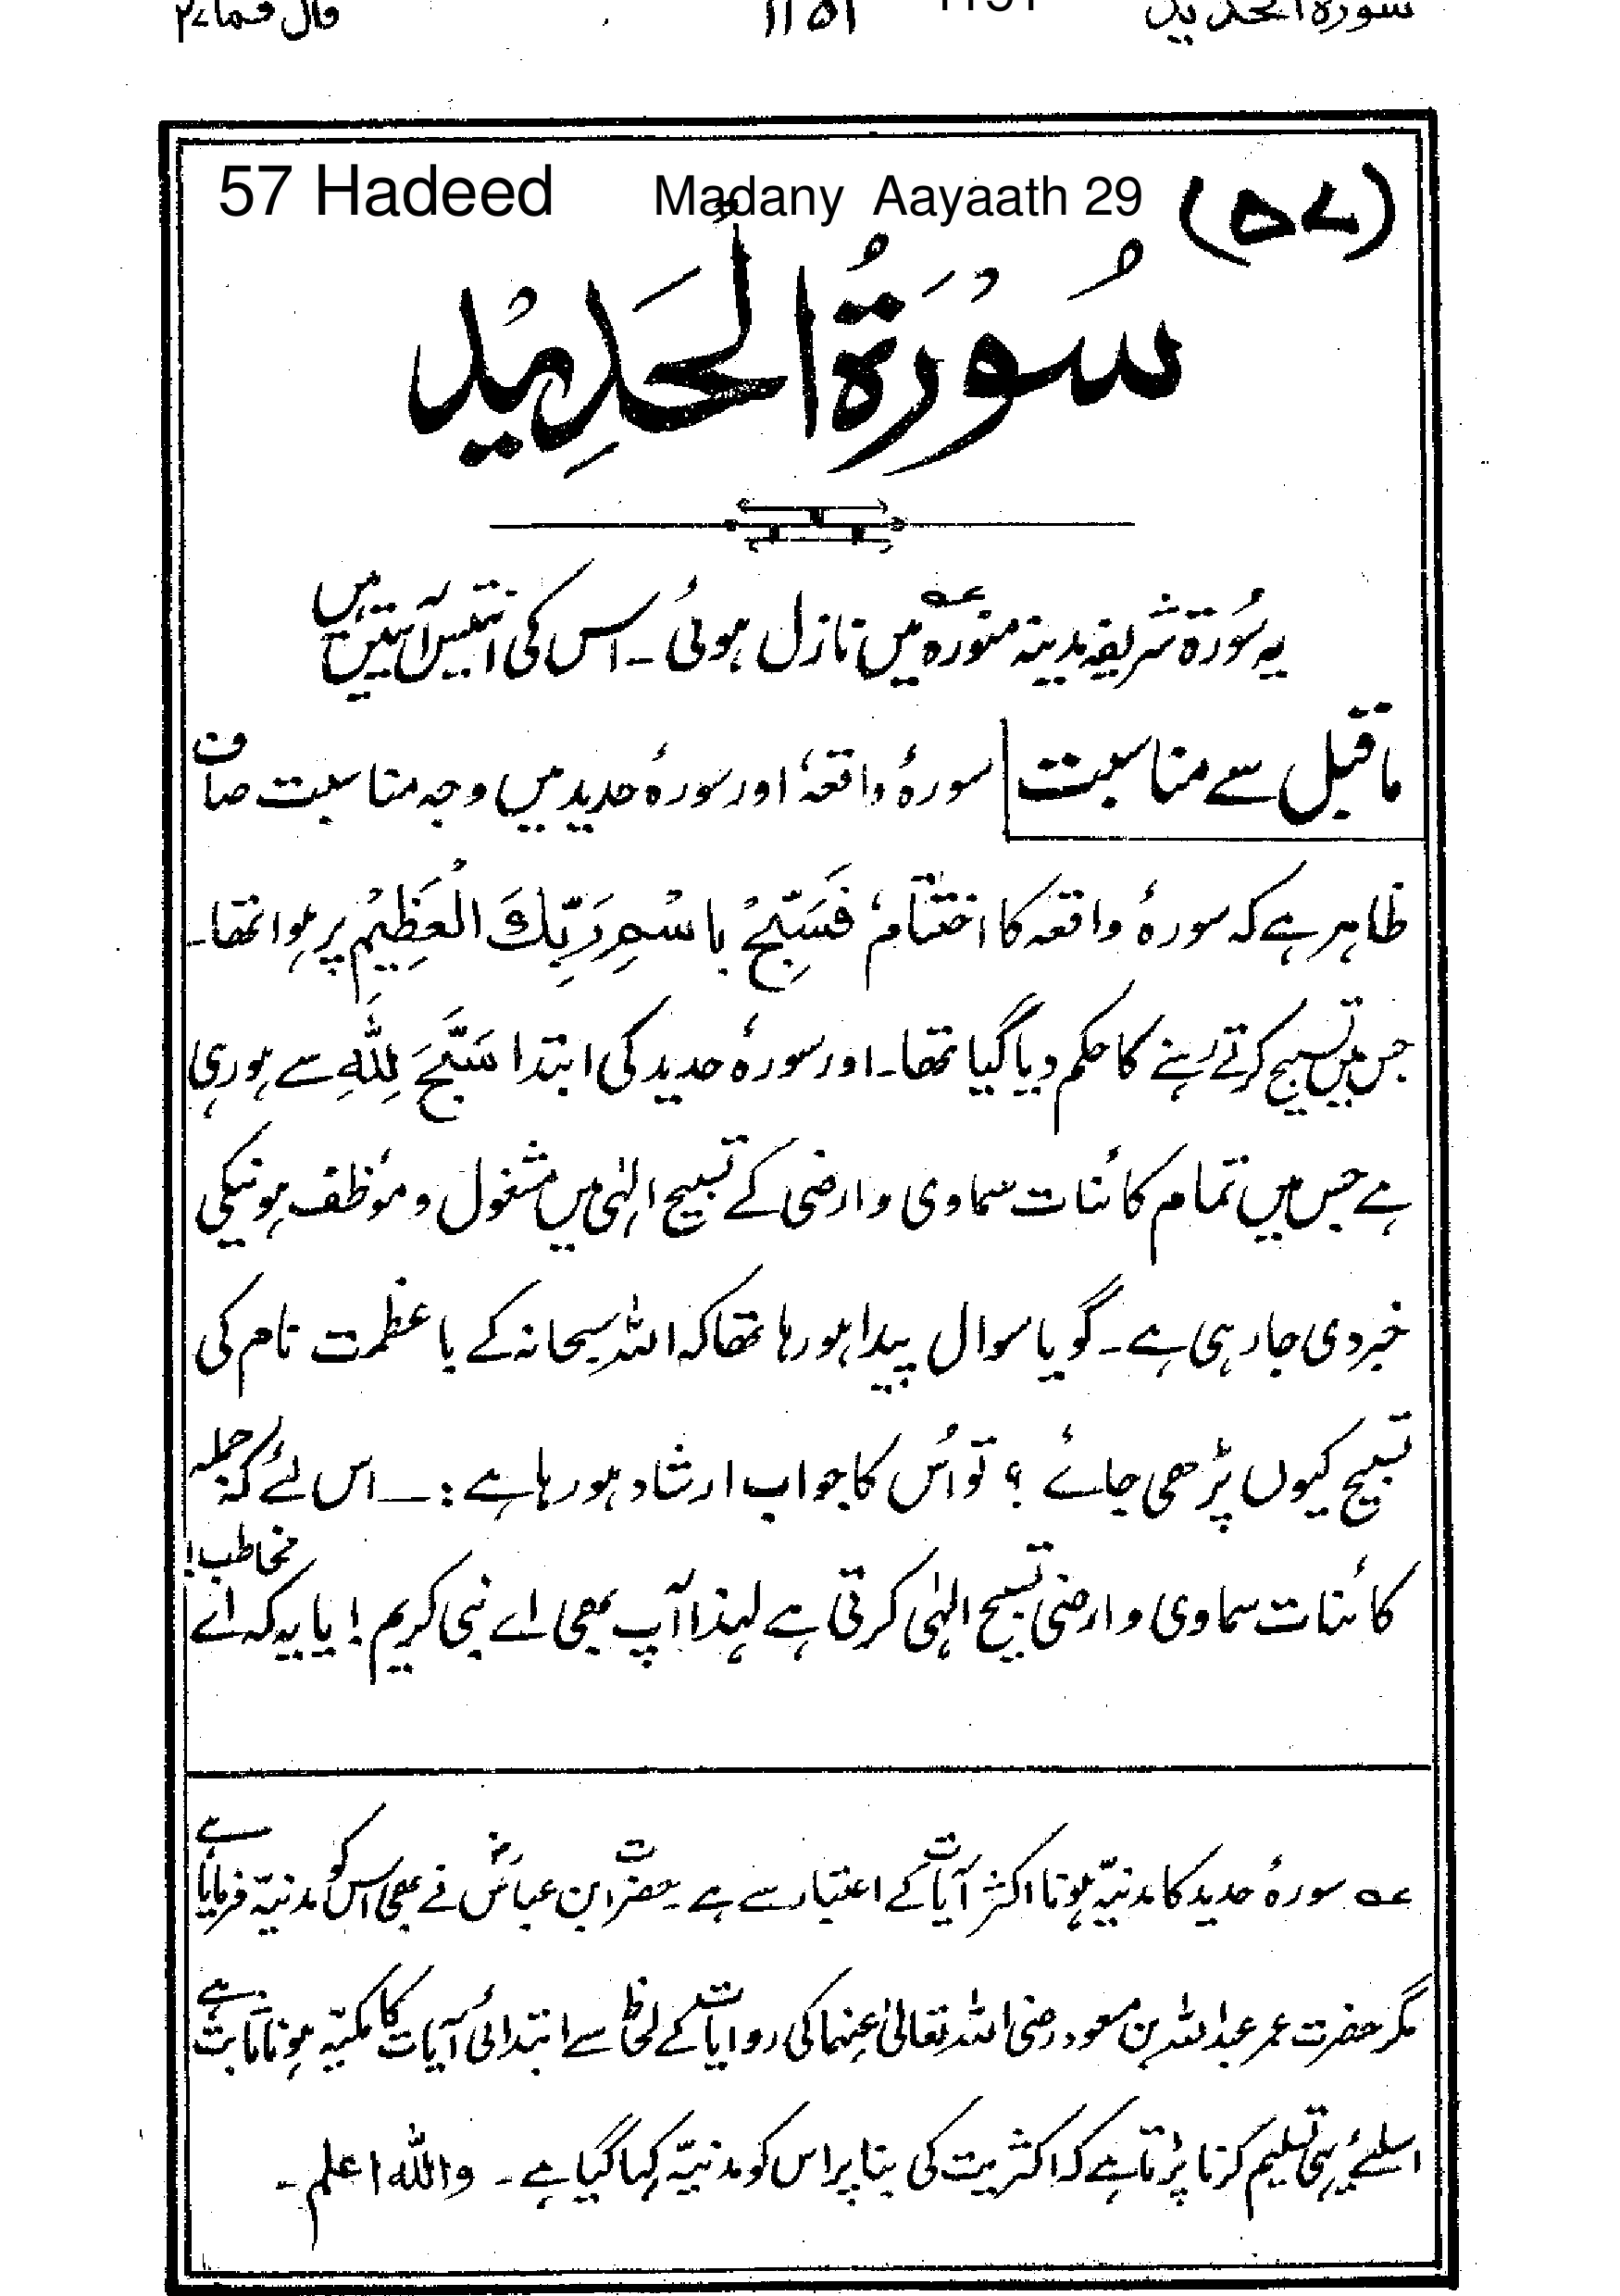 سورة الحدید ۱۱۵۱ 1151 قال فما ۲۷
57 Hadeed Madany Aayaath 29 (۵۷)
سُوْرَةُ الْحَدِيْد
یہ سُورۃ شریفہ مدینہ منورہ عہ میں نازل ہوئی ۔ اس کی انتیس آیتیں ہیں
ماقبل سے مناسبت سورۂ واقعہ اور سورۂ حدید میں وجہ مناسبت صاف
ظاہر ہے کہ سورۂ واقعہ کا اختتام فَسَبِّحْ بِاسْمِ رَبِّكَ الْعَظِيْمِ پر ہوا تھا۔
جس میں تسبیح کرتے رہنے کا حکم دیا گیا تھا۔ اور سورۂ حدید کی ابتدا سَبَّحَ لِلّٰهِ سے ہو رہی
ہے جس میں تمام کائنات سماوی و ارضی کے تسبیح الہٰی میں مشغول و مؤظف ہونیکی
خبر دی جا رہی ہے۔ گویا سوال پیدا ہو رہا تھا کہ اللہ سبحانہ کے باعظمت نام کی
تسبیح کیوں پڑھی جائے ؟ تو اُس کا جواب ارشاد ہو رہا ہے :۔ اس لئے کہ جملہ
کائنات سماوی و ارضی تسبیح الہٰی کرتی ہے لہذا آپ بھی اے نبی کریم ! یا یہ کہ اے مخاطب!
عہ سورۂ حدید کا مدنیّہ ہونا اکثر آیات کے اعتبار سے ہے ۔ حضرت ابن عباسؓ نے بھی اس کو مدنیّہ فرمایا ہے
مگر حضرت عمر عبداللہ بن مسعود رضی اللہ تعالیٰ عنہما کی روایات کے لحاظ سے ابتدائی آیات کا مکیّہ ہونا ثابت ہے
اسلیئے یہی تسلیم کرنا پڑتا ہے کہ اکثریت کی بنا پر اس کو مدنیّہ کہا گیا ہے ۔ واللہ اعلم ۔